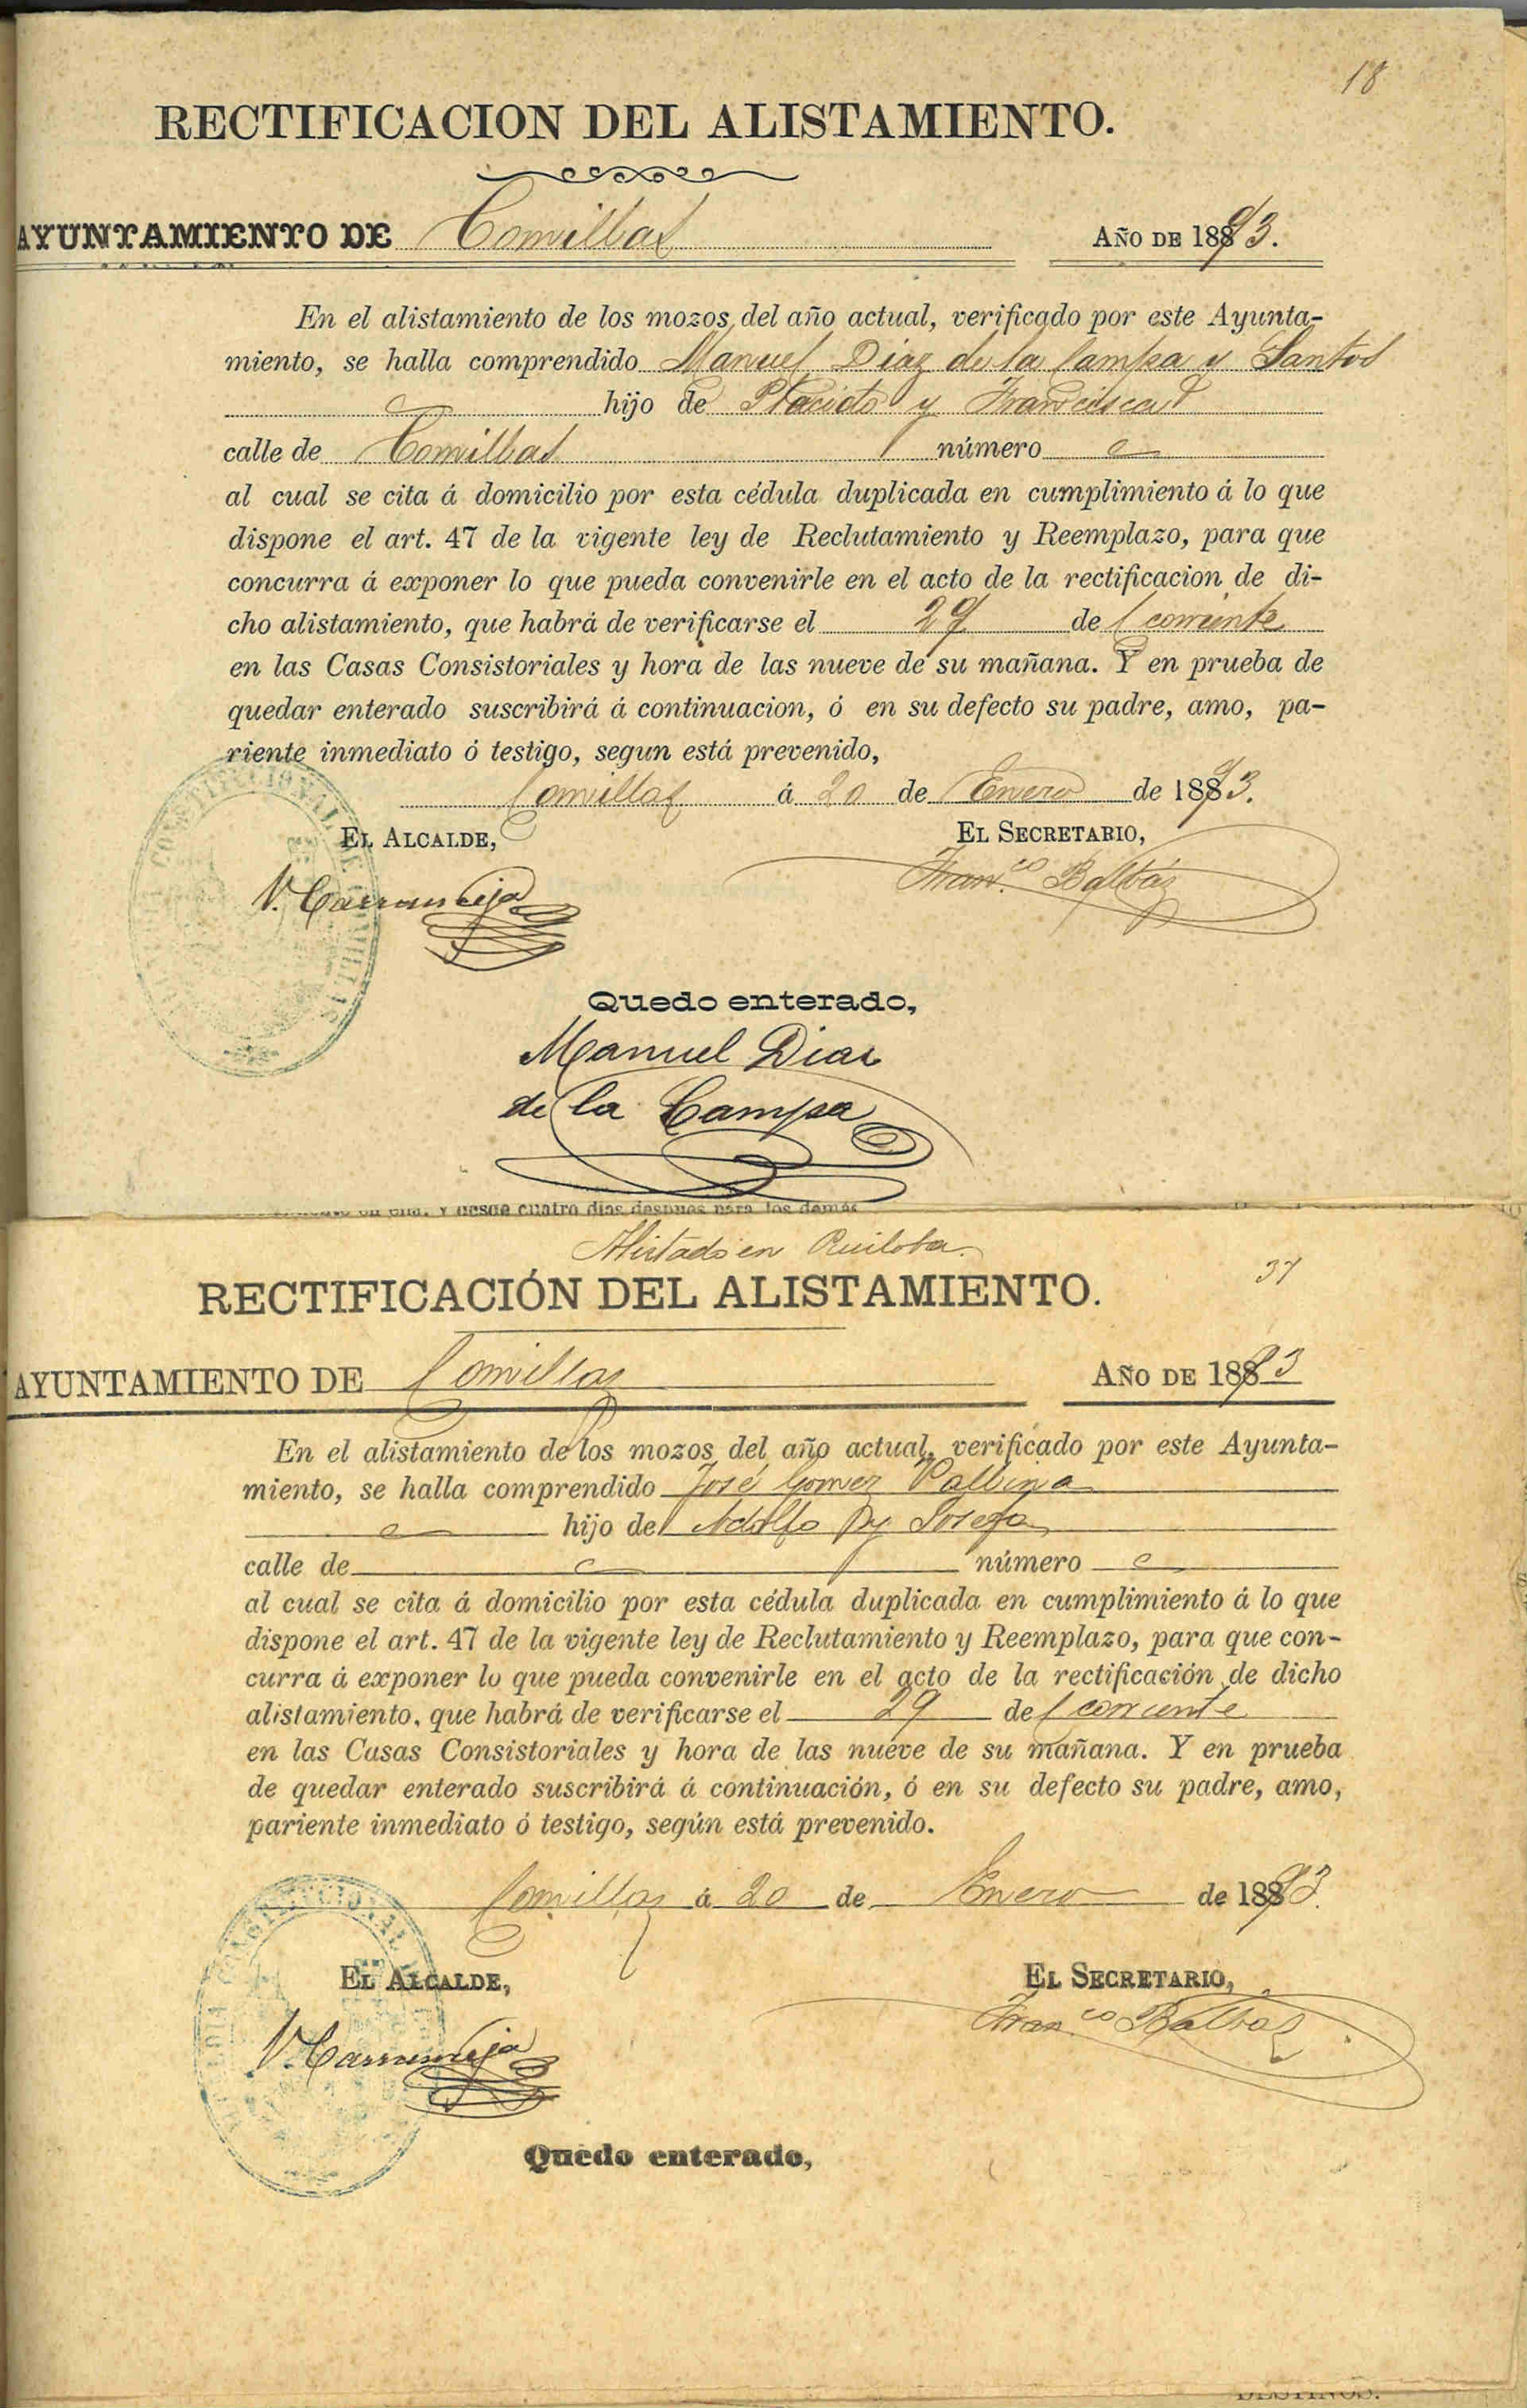 18
RECTIFICACION DEL ALISTAMIENTO.
AYUNTAMIENTO DE Comillas AÑO DE 1893.
En el alistamiento de los mozos del año actual, verificado por este Ayunta-
miento, se halla comprendido Manuel Diaz de la Campa y Santos
hijo de Placido y Francisca
calle de Comillas número
al cual se cita á domicilio por esta cédula duplicada en cumplimiento á lo que
dispone el art. 47 de la vigente ley de Reclutamiento y Reemplazo, para que
concurra á exponer lo que pueda convenirle en el acto de la rectificacion de di-
cho alistamiento, que habrá de verificarse el 29 del corriente
en las Casas Consistoriales y hora de las nueve de su mañana. Y en prueba de
quedar enterado suscribirá á continuacion, ó en su defecto su padre, amo, pa-
riente inmediato ó testigo, segun está prevenido,
Comillas á 20 de Enero de 1893.
EL ALCALDE, EL SECRETARIO,
Franco Balbás
Quedo enterado,
Manuel Diaz
de la Campa
y desde cuatro dias despues para los demás
Alistado en Ruiloba.
37
RECTIFICACIÓN DEL ALISTAMIENTO.
AYUNTAMIENTO DE Comillas AÑO DE 1893
En el alistamiento de los mozos del año actual, verificado por este Ayunta-
miento, se halla comprendido José Gomez
hijo de Adolfo y Josefa
calle de número
al cual se cita á domicilio por esta cédula duplicada en cumplimiento á lo que
dispone el art. 47 de la vigente ley de Reclutamiento y Reemplazo, para que con-
curra á exponer lo que pueda convenirle en el acto de la rectificación de dicho
alistamiento, que habrá de verificarse el 29 del corriente
en las Casas Consistoriales y hora de las nueve de su mañana. Y en prueba
de quedar enterado suscribirá á continuación, ó en su defecto su padre, amo,
pariente inmediato ó testigo, según está prevenido.
Comillas á 20 de Enero de 1893.
EL ALCALDE, EL SECRETARIO,
Franco Balbas
Quedo enterado,